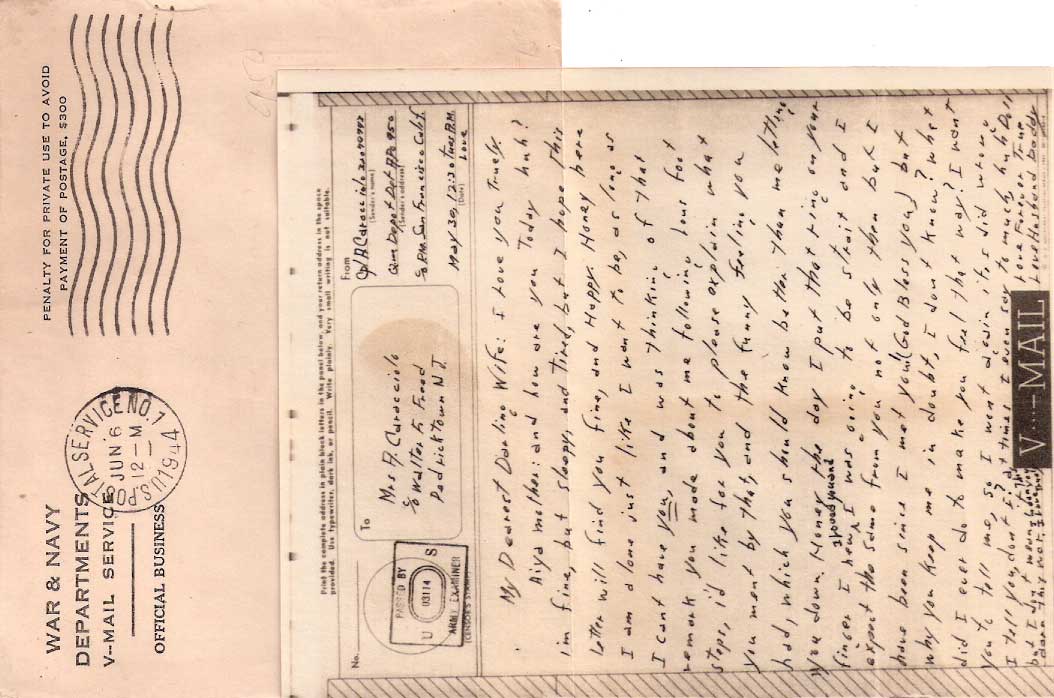 WAR & NAVY
DEPARTMENTS
V--MAIL SERVICE
OFFICIAL BUSINESS
U.S. POSTAL SERVICE NO. 1
JUN 6
12 - M
1944
PENALTY FOR PRIVATE USE TO AVOID
PAYMENT OF POSTAGE, $300
Print the complete address in plain block letters in the panel below, and your return address in the space
provided. Use typewriter, dark ink, or pencil. Write plainly. Very small writing is not suitable.
No.
PASSED BY
U 03114 S
ARMY EXAMINER
(CENSOR'S STAMP)
To
Mrs A. Caracciolo
c/o Walter F. Freed
Pedricktown N.J.
From
(Sender's name)
Qm Depot Det APO 850
(Sender's address)
c/o P.M. San Francisco Calif.
May 30, 12:30 Tues P.M.
(Date)
Love
My Dearest Darling Wife: I love you truly.
Aiya mother: and how are you Today huh?
im fine, but sleepy, and tired, but I hope this
letter will find you fine, and Happy. Honey here
I am alone just like I want to be, as long as
I cant have you, and was thinking of that
remark you made about me following Lous foot
steps, i'd like for you to please explain what
you ment by that, and the funny feeling you
had, which you should know better than me letting
you down, Honey the day I put that ring on your
finger I knew I was going to be strait and I
expect the same from you not only then but I
have been since I met you! (God Bless you) but
why you keep me in doubt, I dont know? what
did I ever do to make you feel that way? I want
you to tell me, so I wont again its did wrong
I tell you, dont i? at times I even say to much huh? Doll
but I
Love Forever True
Love Husband Daddy
V···-MAIL